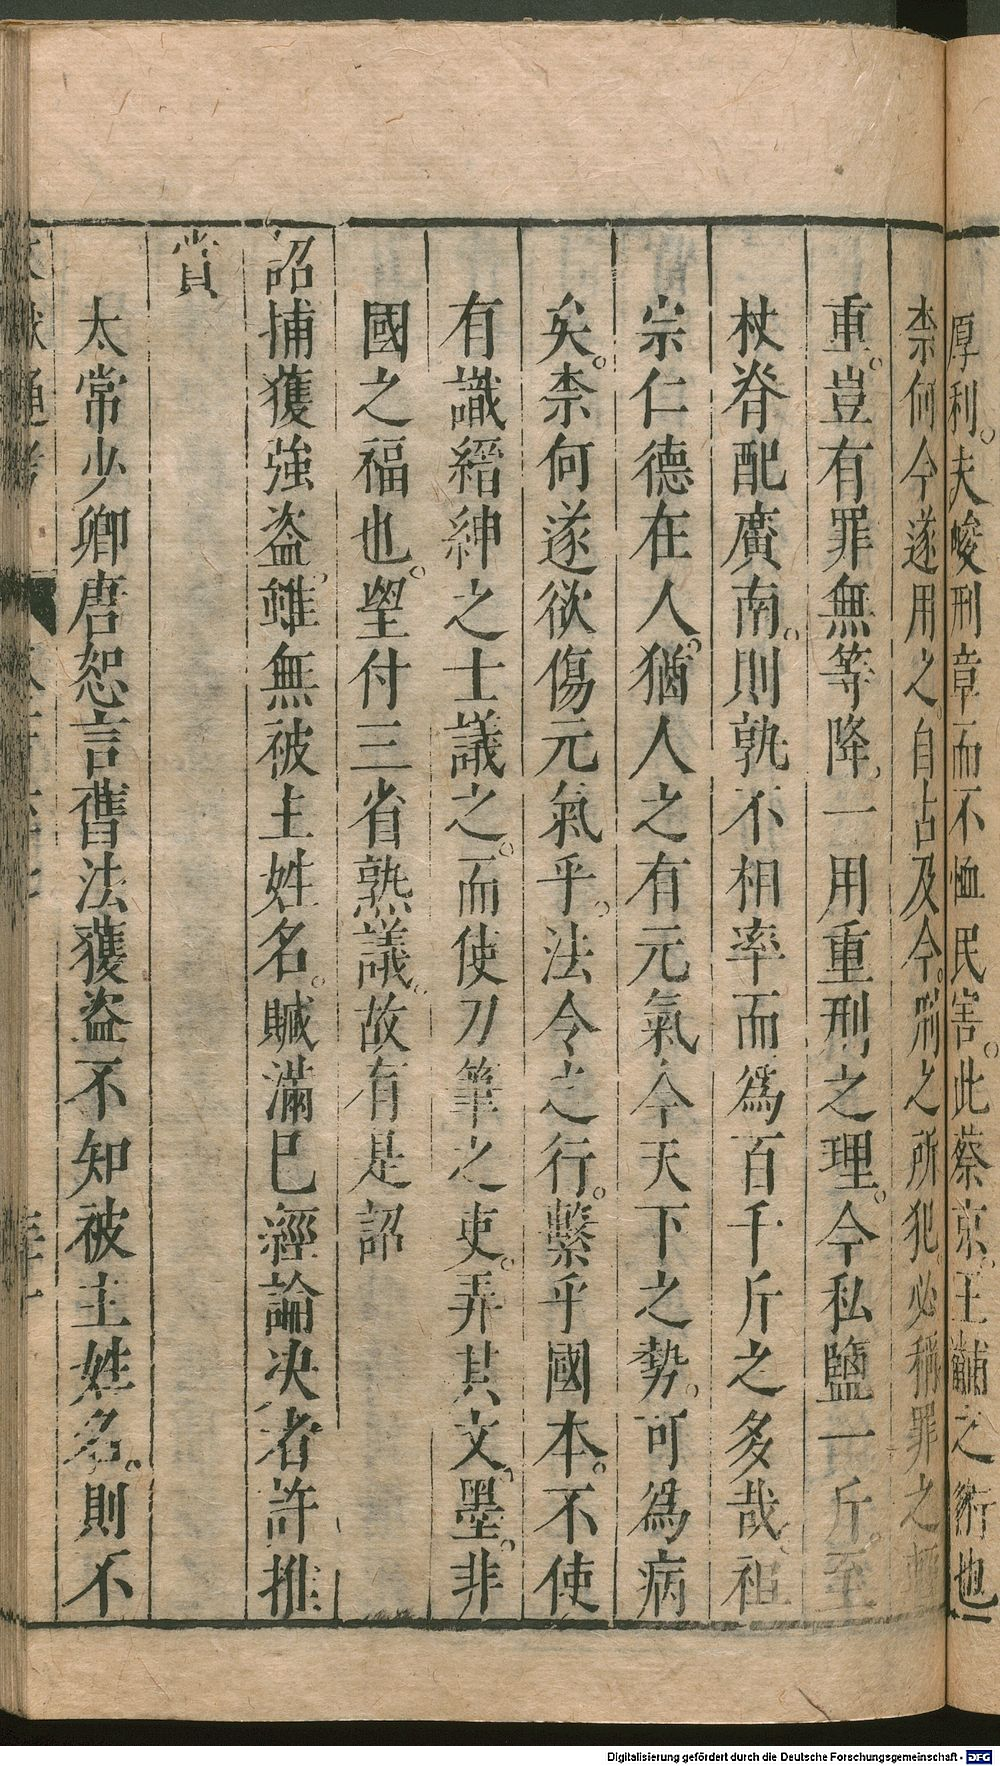 厚利。夫峻刑章而不恤民害。此蔡京。王黼之術也
柰何今遂用之。自古及今。刑之所犯。必稱罪之輕
重。豈有罪無等降。一用重刑之理。今私鹽一斤。至
杖脊配廣南。則孰不相率而爲百千斤之多哉。祖
宗仁德在人。猶人之有元氣今天下之勢。可爲病
矣。柰何遂欲傷元氣乎。法令之行。繫乎國本。不使
有識縉紳之士議之。而使刀筆之吏。弄其文墨。非
國之福也。望付三省熟議。故有是詔
詔捕獲強盜。雖無被主姓名。贓滿巳經論决者許推
賞
太常少卿唐恕言舊法獲盜不知被主姓名。則不
文獻通考
Digitalisierung gefördert durch die Deutsche Forschungsgemeinschaft - DFG